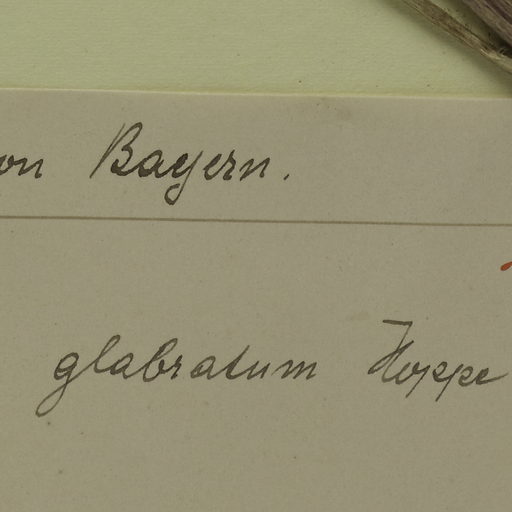 on Bayern.
glabratum Hoppe